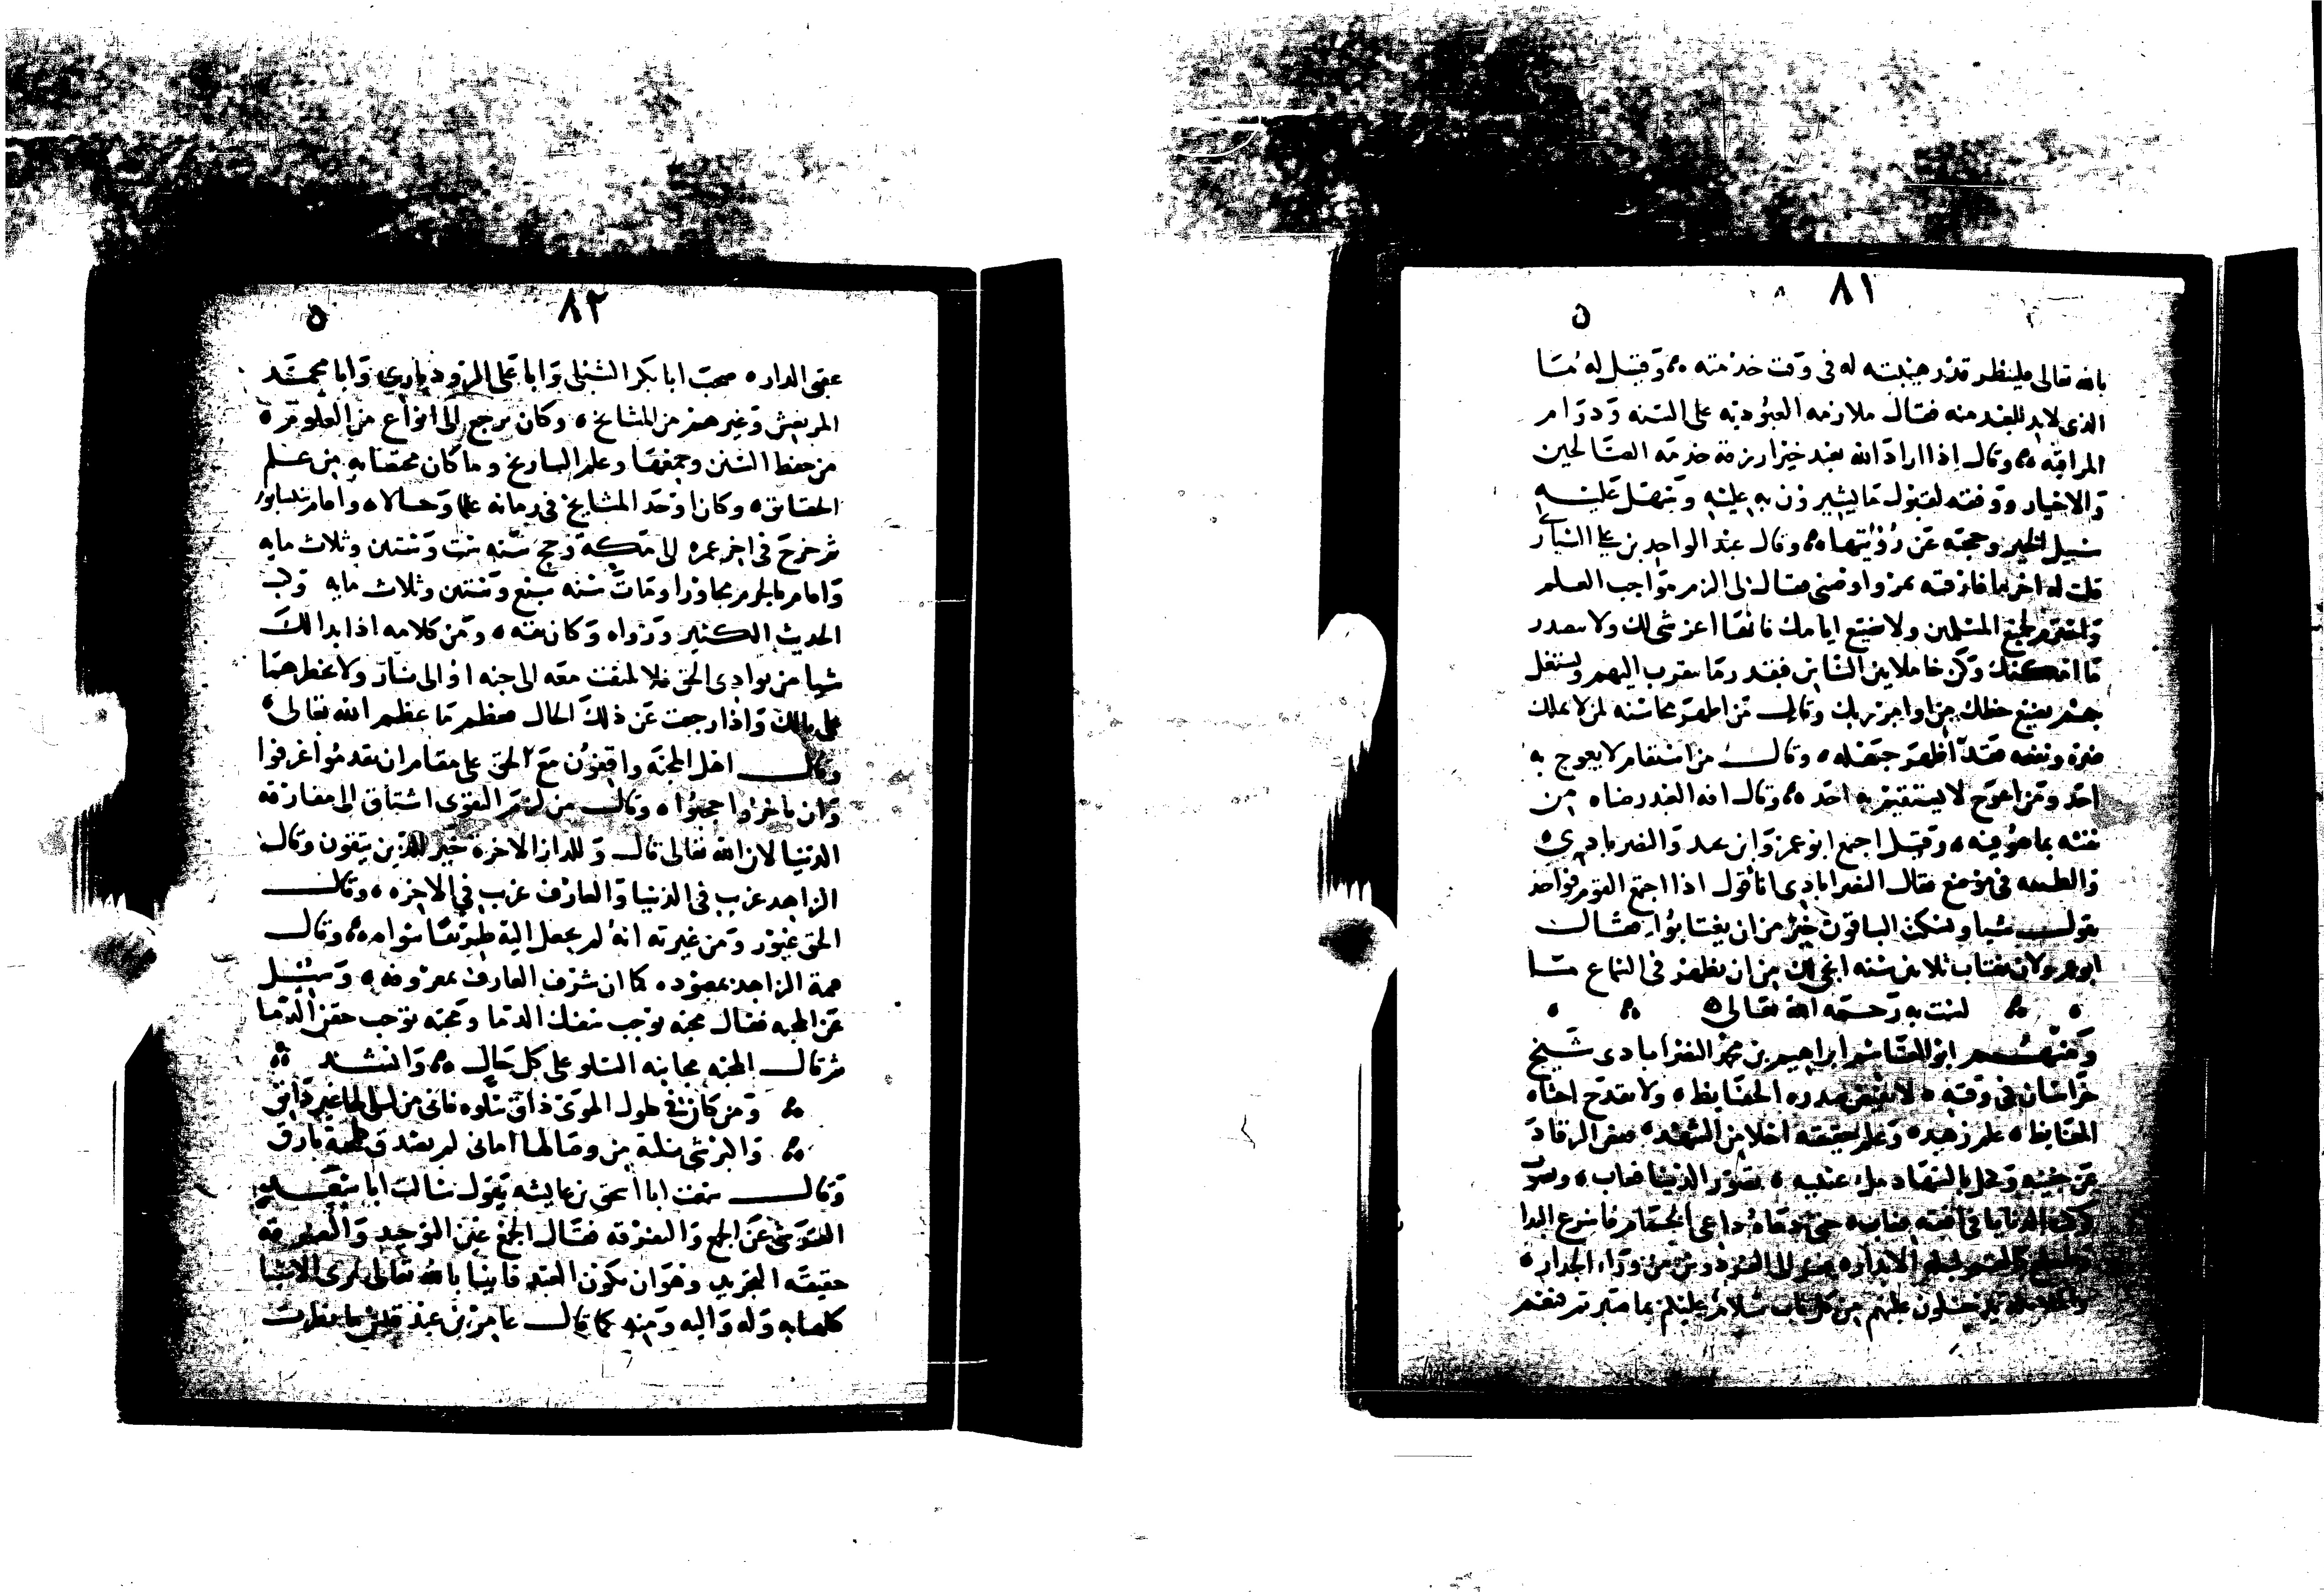 ٨١
بالله تعالى فلينظر قدر هيبته له في وقت خدمته وقيل له ما
الذي لابد للعبد منه فقال ملازمه العبوديه على السنه ودوام
المراقبه وقال اذا اراد الله بعبد خيرا رزقه خدمه الصالحين
والاخيار ووفقه لقبول ما يشيرون به عليه وسهل عليه
سبيل الخير وحجبه عن رؤيتها وقال عبد الواحد بن علي السيار
قلت له اخر ما فارقته بمرو اوصني فقال لي الزم مواجب العلم
واحترم لجميع المسلمين ولا تضيع ايامك فانها اعز شي لك ولا تتصدر
ما امكنك وكن خاملا بين الناس فبقدر ما تتقرب اليهم وتشتغل
بهم تضيع حظك من اوامر ربك وقال من اظهر محاسنه لمن لا يملك
ضره ونفعه فقد اظهر جهله وقال من استقام لا يعوج به
احد ومن اعوج لا يستقيم به احد وقال افه العبد رضاه من
نفسه بما هو فيه وقيل اجتمع ابو عمرو ابن نجيد والنصرابادي
والطبقه في موضع فقال النصرابادي انا اقول اذا اجتمع القوم فواحد
يقول شيا ويسكت الباقون خير من ان يغتابوا فقال
ابو عمرو لان تغتاب ثلاثين سنه انجى لك من ان تظهر في السماع ما
لست به رحمه الله تعالى
ومنهم ابو القاسم ابراهيم بن محمد النصرابادي شيخ
خراسان في وقته لا تغيض صدره الحفايظ ولا تقدح احشاه
المغايظ علم زهده وعلم حقيقته احلا من الشهد نفض الرقاد
عن جفنيه وكحل بالسهاد ملء عينيه تصور الدنيا فعاب
حتى دعاه داعي الحمام فاسرع البدا
والملائكة يدخلون عليهم من كل باب سلام عليكم بما صبرتم فنعم
٨٢
عقبى الدار صحب ابا بكر الشبلي وابا علي الروذباري وابا محمد
المرتعش وغيرهم من المشايخ وكان يرجع الى انواع من العلوم
من حفظ السنن وجمعها وعلم التاريخ وما كان مختصا به من علم
الحقائق وكان اوحد المشايخ في زمانه علما وحالا واقام بنيسابور
ثم خرج في اخر عمره الى مكه وحج سنه ست وستين وثلاث مايه
واقام بالحرم مجاورا ومات سنه سبع وستين وثلاث مايه وكتب
الحديث الكثير ورواه وكان ثقه ومن كلامه اذا بدا لك
شيا من بوادي الحق فلا تلتفت معه الى جنه او الى نار ولا تخطرهما
على بالك واذا رجعت عن ذلك الحال فعظم ما عظم الله تعالى
وقال اهل المحبه واقفون مع الحق على مقام ان تقدموا غرقوا
وان تاخروا حجبوا وقال من لزم التقوى اشتاق الى مفارقه
الدنيا لان الله تعالى قال وللدار الاخرة خير للذين يتقون وقال
الزاهد غريب في الدنيا والعارف غريب في الاخره وقال
الحق غيور ومن غيرته انه لم يجعل اليه طريقا سواه وقال
همة الزاهد بمعبوده كما ان شرف العارف بمعروفه وسئل
عن المحبه فقال محبه توجب سفك الدما ومحبه توجب حقن الدما
ثم قال المحبه مجانبه السلو على كل حال وانشد
ومن كان في طول الهوى ذاق سلوه فاني من ليلى لها غير ذايق
واكبر شي نلته من وصالها اماني لم تصدق كلمحة بارق
وقال سمعت ابا اسحق بن عايشه يقول سالت ابا سعيد
القرشي عن الجمع والتفرقه فقال الجمع عين التوحيد والتفرقه
حقيقه التجريد وهو ان يكون العبد فانيا بالله تعالى يرى الاشيا
كلها به وله واليه ومنه كما قال عامر بن عبد قيس ما نظرت